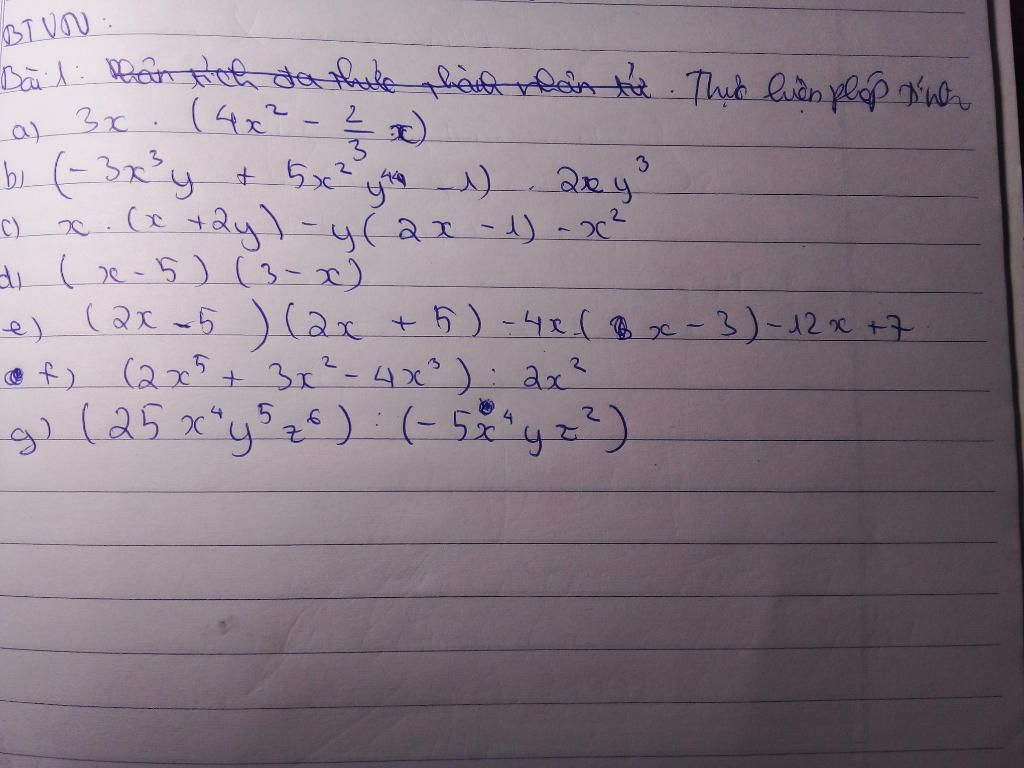 BTVN:
Bài 1: Phân tích đa thức thành nhân tử. Thực hiện phép tính
a) 3x . (4x² - 2/3 x)
b) (-3x³y + 5x²y⁴ - 1) . 2xy³
c) x . (x + 2y) - y(2x - 1) - x²
d) (x - 5) (3 - x)
e) (2x - 5) (2x + 5) - 4x . (x - 3) - 12x + 7
f) (2x⁵ + 3x² - 4x³) : 2x²
g) (25x⁴y⁵z⁶) : (-5x⁴yz²)